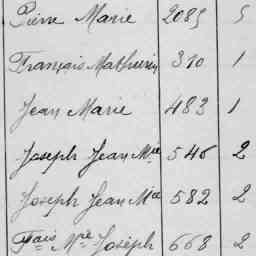 Pierre Marie 2085 5
François Mathurin 310 1
Jean Marie 483 1
Joseph Jean Mie 546 2
Joseph Jean Mie 582 2
Fçais Mie Joseph 668 2